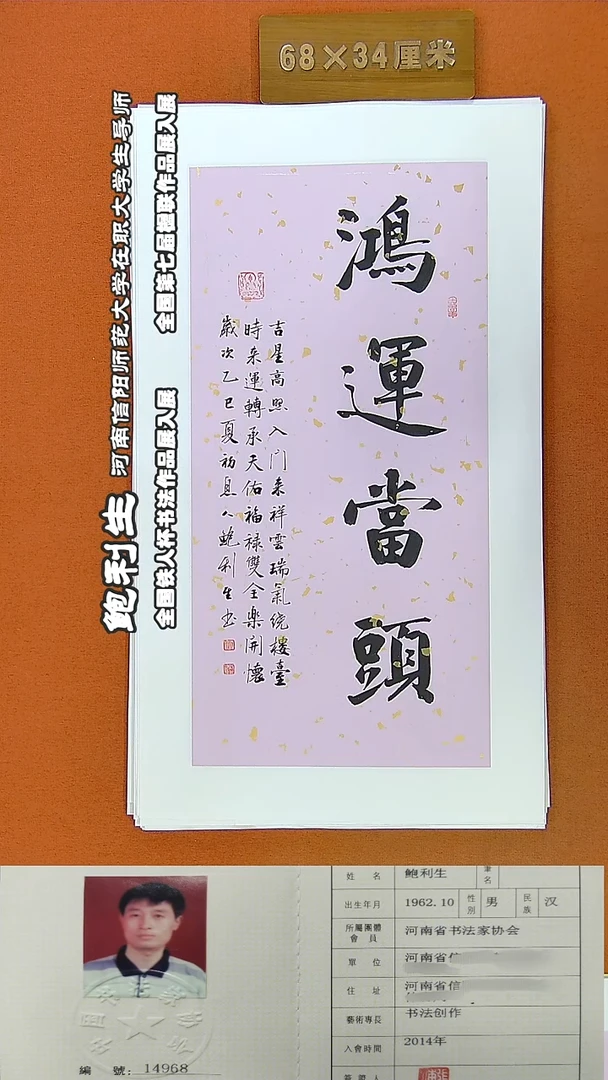 68×34厘米
鲍利生 河南信阳师范大学在职大学生导师
全国铁人杯书法作品展入展 全国第七届楹联作品展入展
鴻運當頭
吉星高照入门来祥雲瑞氣绕樓臺
時来運轉承天佑福禄雙全樂開懷
歲次乙巳夏初息人鲍利生书
姓 名 鲍利生 筆名
出生年月 1962.10 性别 男 民族 汉
所屬團體會員 河南省书法家协会
單 位 河南省信
住 址 河南省信
藝術專長 书法创作
入會時間 2014年
簽證人
編 號: 14968